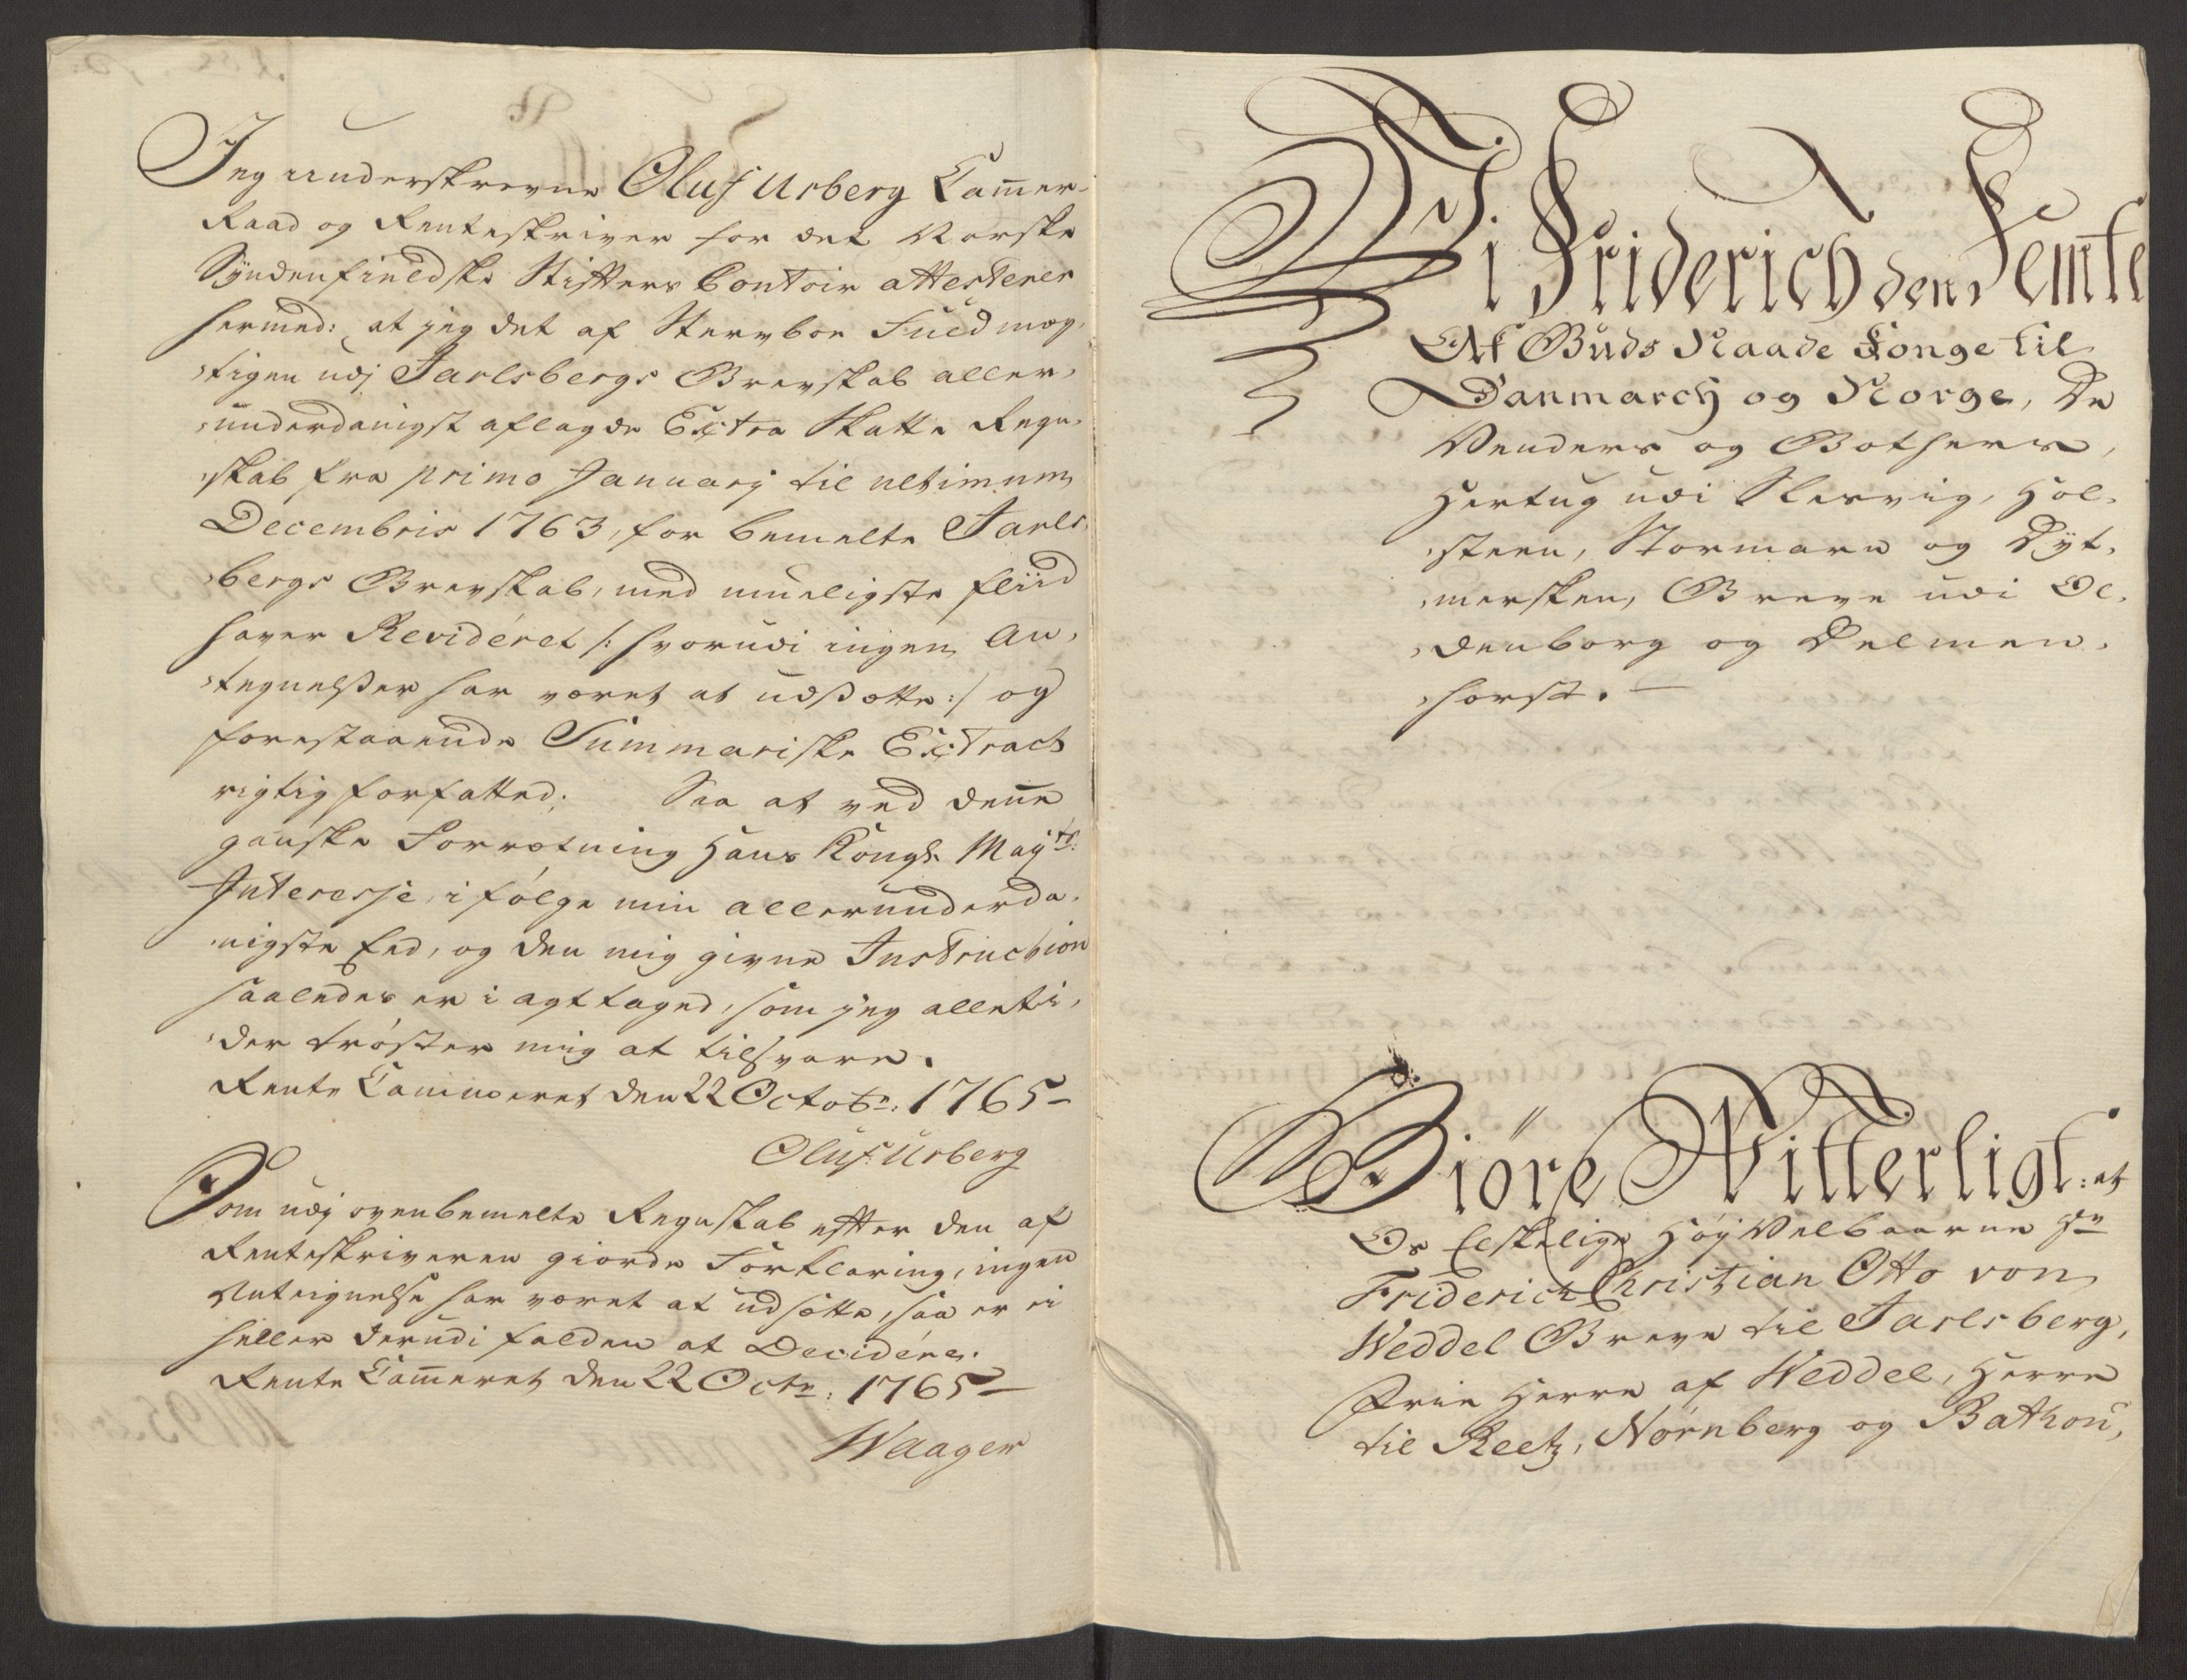 Jeg underskrevne Oluf Urberg Cam̄er-
Raad og Renteskriver for det Norske
Syndenfieldske Stifters Contoir attesterer
hermed: at jeg det af Stervboe Fuldmæg-
tigen udj Jarlsbergs Grevskab aller-
underdanigst aflagde Extra Skatte Regn-
skab fra primo Januarij til ultimum
Decembris 1763, for bemelte Jarls-
bergs Grevskab, med mueligste fliid
haver Revideret /: hvorudi ingen An-
tegnelsser har været at udssætte :/ og
forestaaende Summariske Extract
rigtig forfatted; Saa at ved denne
gandske Forrætning Hans Kongl. Mayts:
Interesse, i følge min allerunderda-
nigste Eed, og den mig givne Instruction
saaledes er i agt taged, som jeg alleti-
der trøster mig at tilsvare.
Rente Cammeret den 22 Octobr: 1765-
Oluf Urberg
Som udj ovenbemelte Regnskab efter den af
Renteskriveren giorde Forklaring, ingen
Anteignelse har været at udsætte, saa er ei
heller derudi falden at Decidére.
Rente Cam̄eret den 22 Octr: 1765-
Waager
Vi Friderich den Femte
Af Guds Naade Konge til
Danmarch og Norge, De
Venders og Gothers,
Hertug udi Slesvig, Hol-
steen, Stormarn og Dyt-
mersken, Greve udi Ol-
denborg og Delmen-
horst.
Giöre Witterligt: at
Os Elskelige Høy Velbaarne Hr
Friderich Christian Otto von
Weddel Greve til Jarlsberg,
Frie Herre af Weddel, Herre
til Reetz, Nørnberg og Bathou,